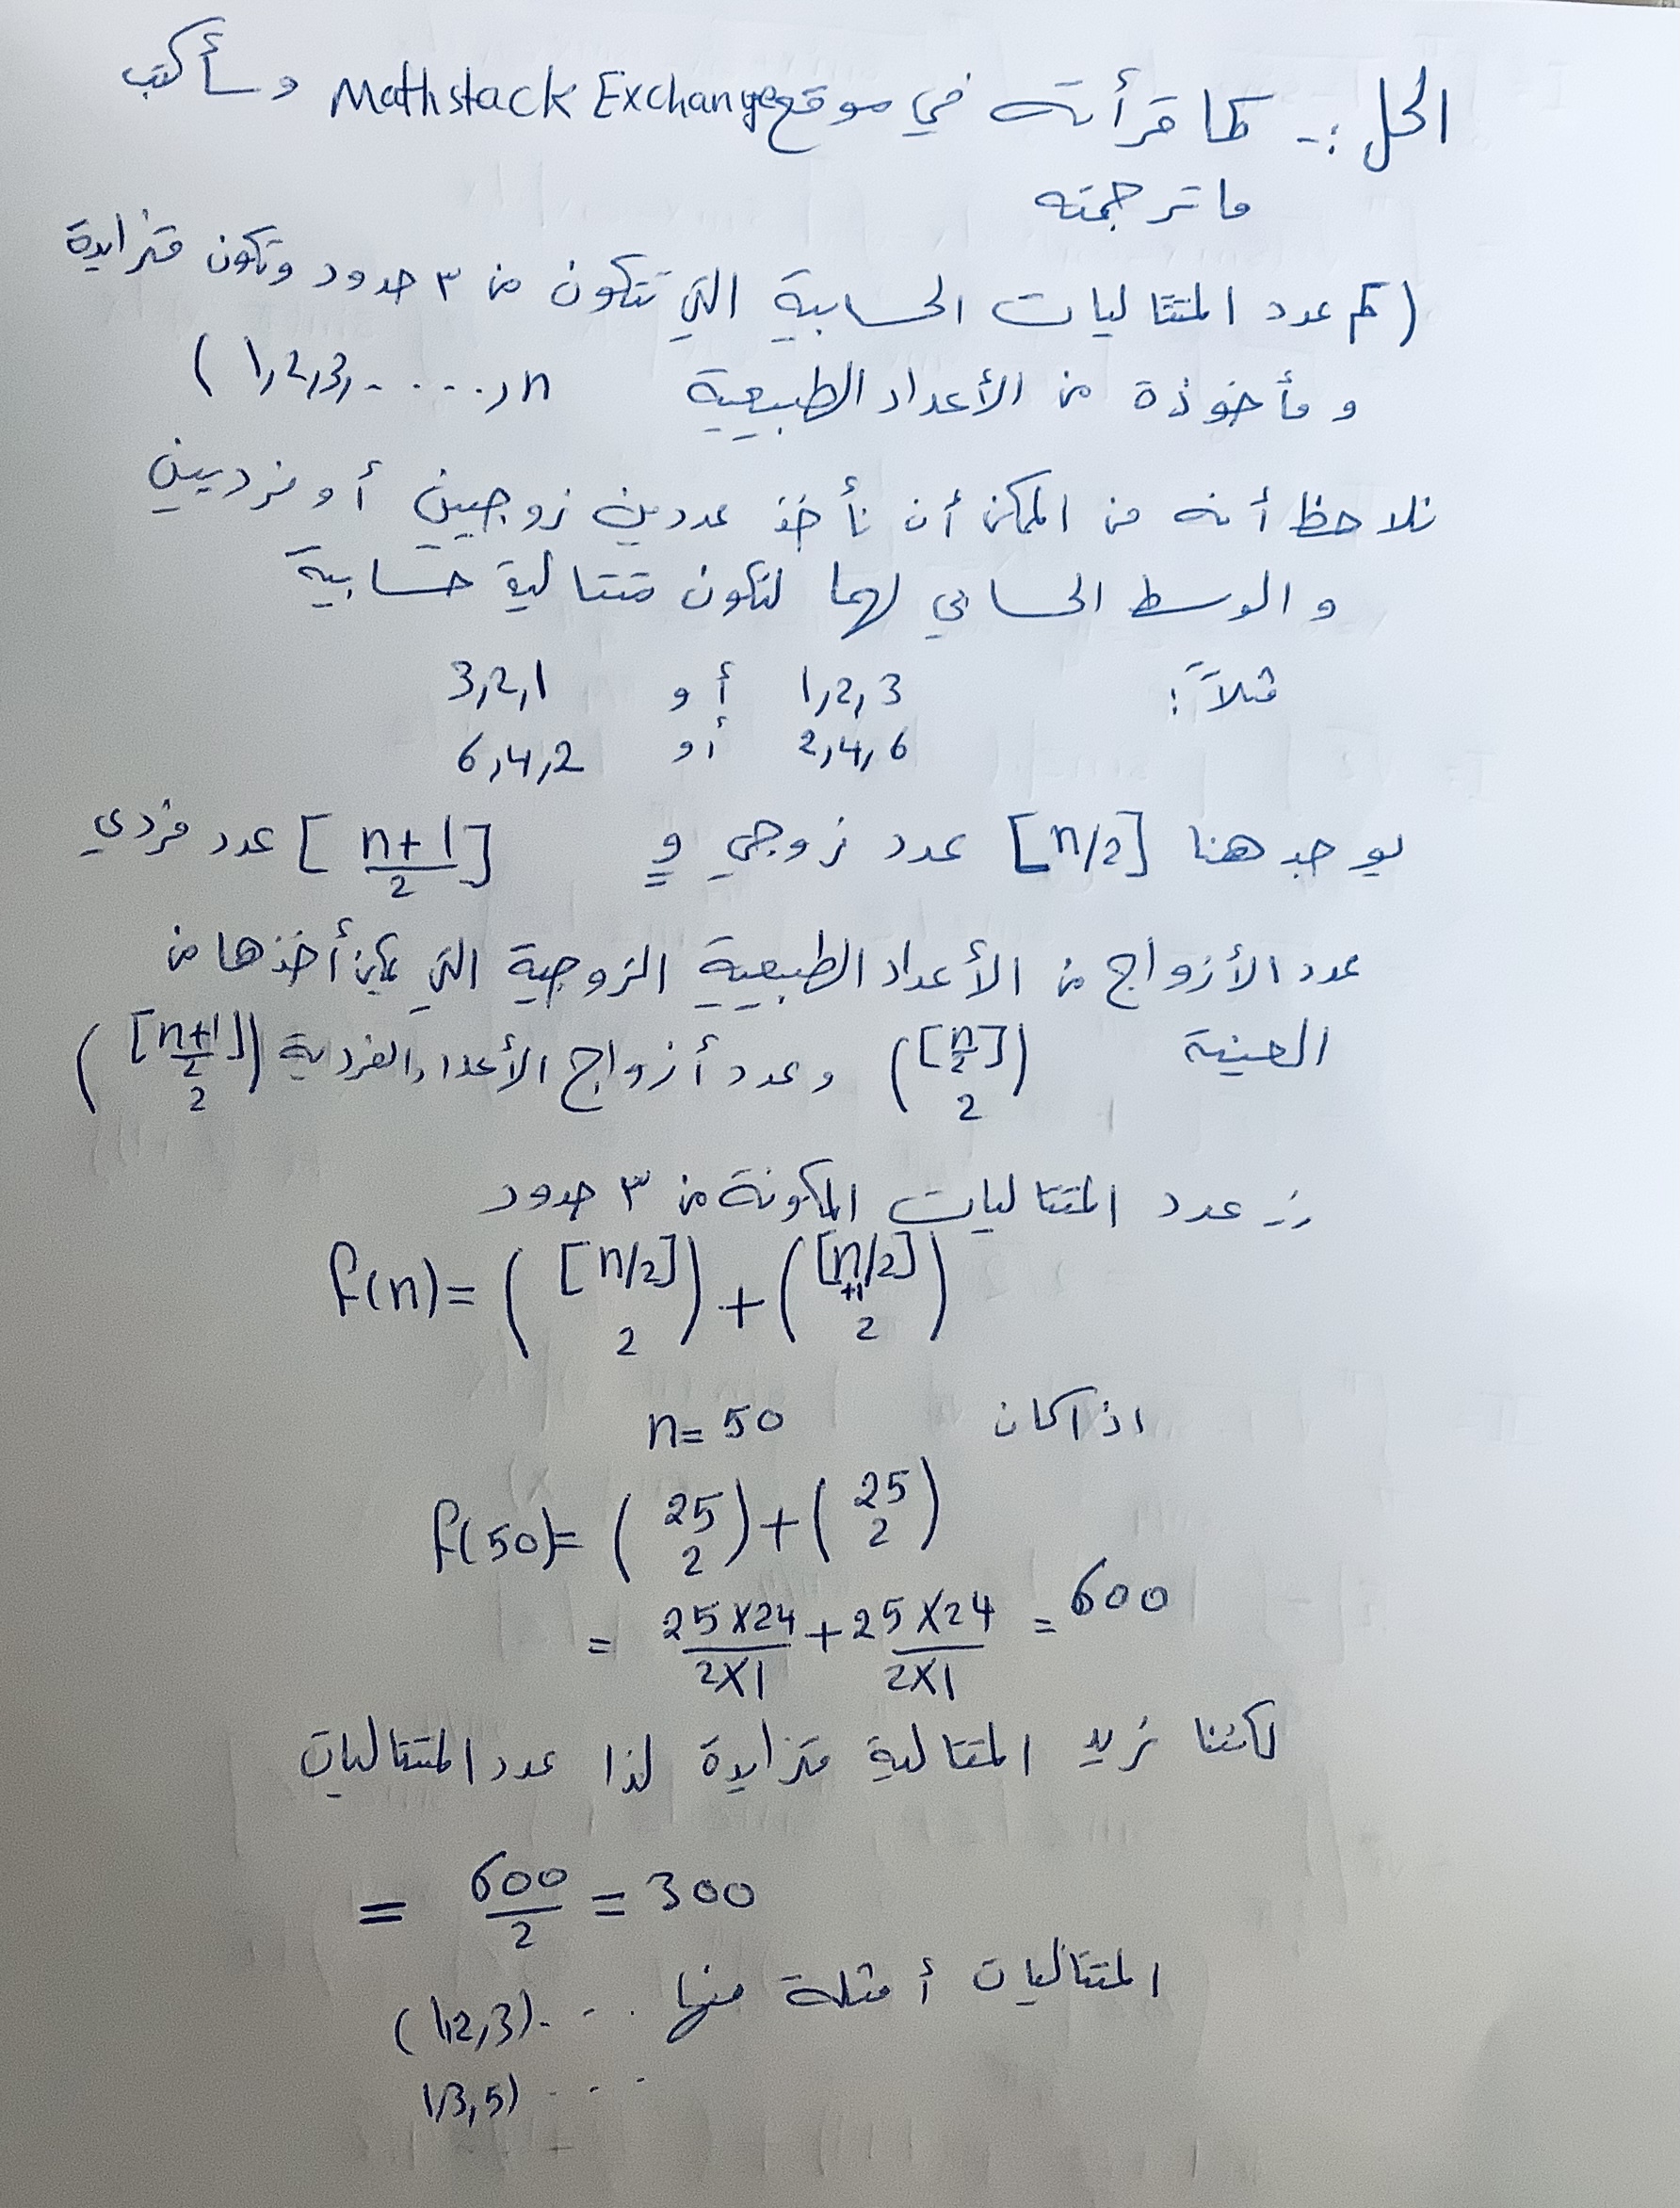 الحل :- كما قرأته في موقع Mathstack Exchange وسأكتب
ما ترجمته
(كم عدد المتتاليات الحسابية التي تتكون من ٣ حدود وتكون متزايدة
و مأخوذة من الأعداد الطبيعية 1,2,3,.....,n)
نلاحظ أنه من الممكن أن نأخذ عددين زوجيين أو فرديين
والوسط الحسابي لهما لتكون متتالية حسابية
مثلاً : 1,2,3 أو 3,2,1
2,4,6 أو 6,4,2
يوجد هنا [n/2] عدد زوجي و [(n+1)/2] عدد فردي
عدد الأزواج من الأعداد الطبيعية الزوجية التي يمكن أخذها من
العينة ([n/2] 2) وعدد أزواج الأعداد الفردية ([(n+1)/2] 2)
∴ عدد المتتاليات المكونة من ٣ حدود
f(n) = ([n/2] 2) + ([n/2] +1 2)
اذا كان n = 50
f(50) = (25 2) + (25 2)
= (25×24)/(2×1) + (25×24)/(2×1) = 600
لكننا نريد المتتالية متزايدة لذا عدد المتتاليات
= 600/2 = 300
المتتاليات أمثلة منها ... (1,2,3)
1,3,5) ...